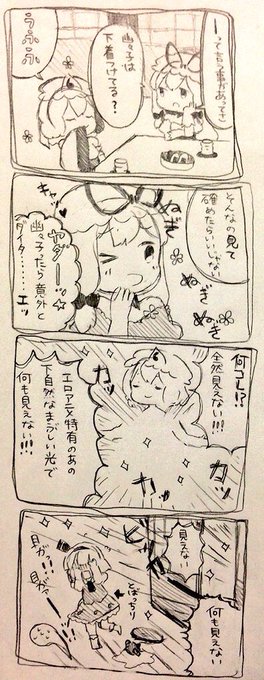 ーって言う事があってさ
幽々子は
下着つけてる?
うふふ
そんなの見て
確めたらいいじゃない
ぬぎ
ぬぎ
ぬぎ
キャッ♥
ヤダー☆
幽々子ったら意外と
ダイタ……エッ
何コレ!?
全然見えない!!!
カッ
カッ
エロアニメ特有のあの
不自然なまぶしい光で
何も見えない!!!
見えない
何も見えない
とばっちり
目が!!!
目がァ